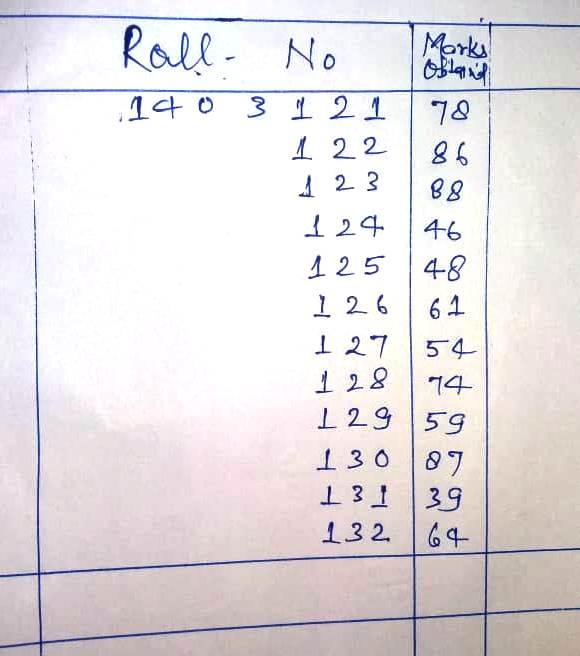 Roll- No Marks Obtaind
1403121 78
122 86
123 88
124 46
125 48
126 61
127 54
128 74
129 59
130 87
131 39
132 64